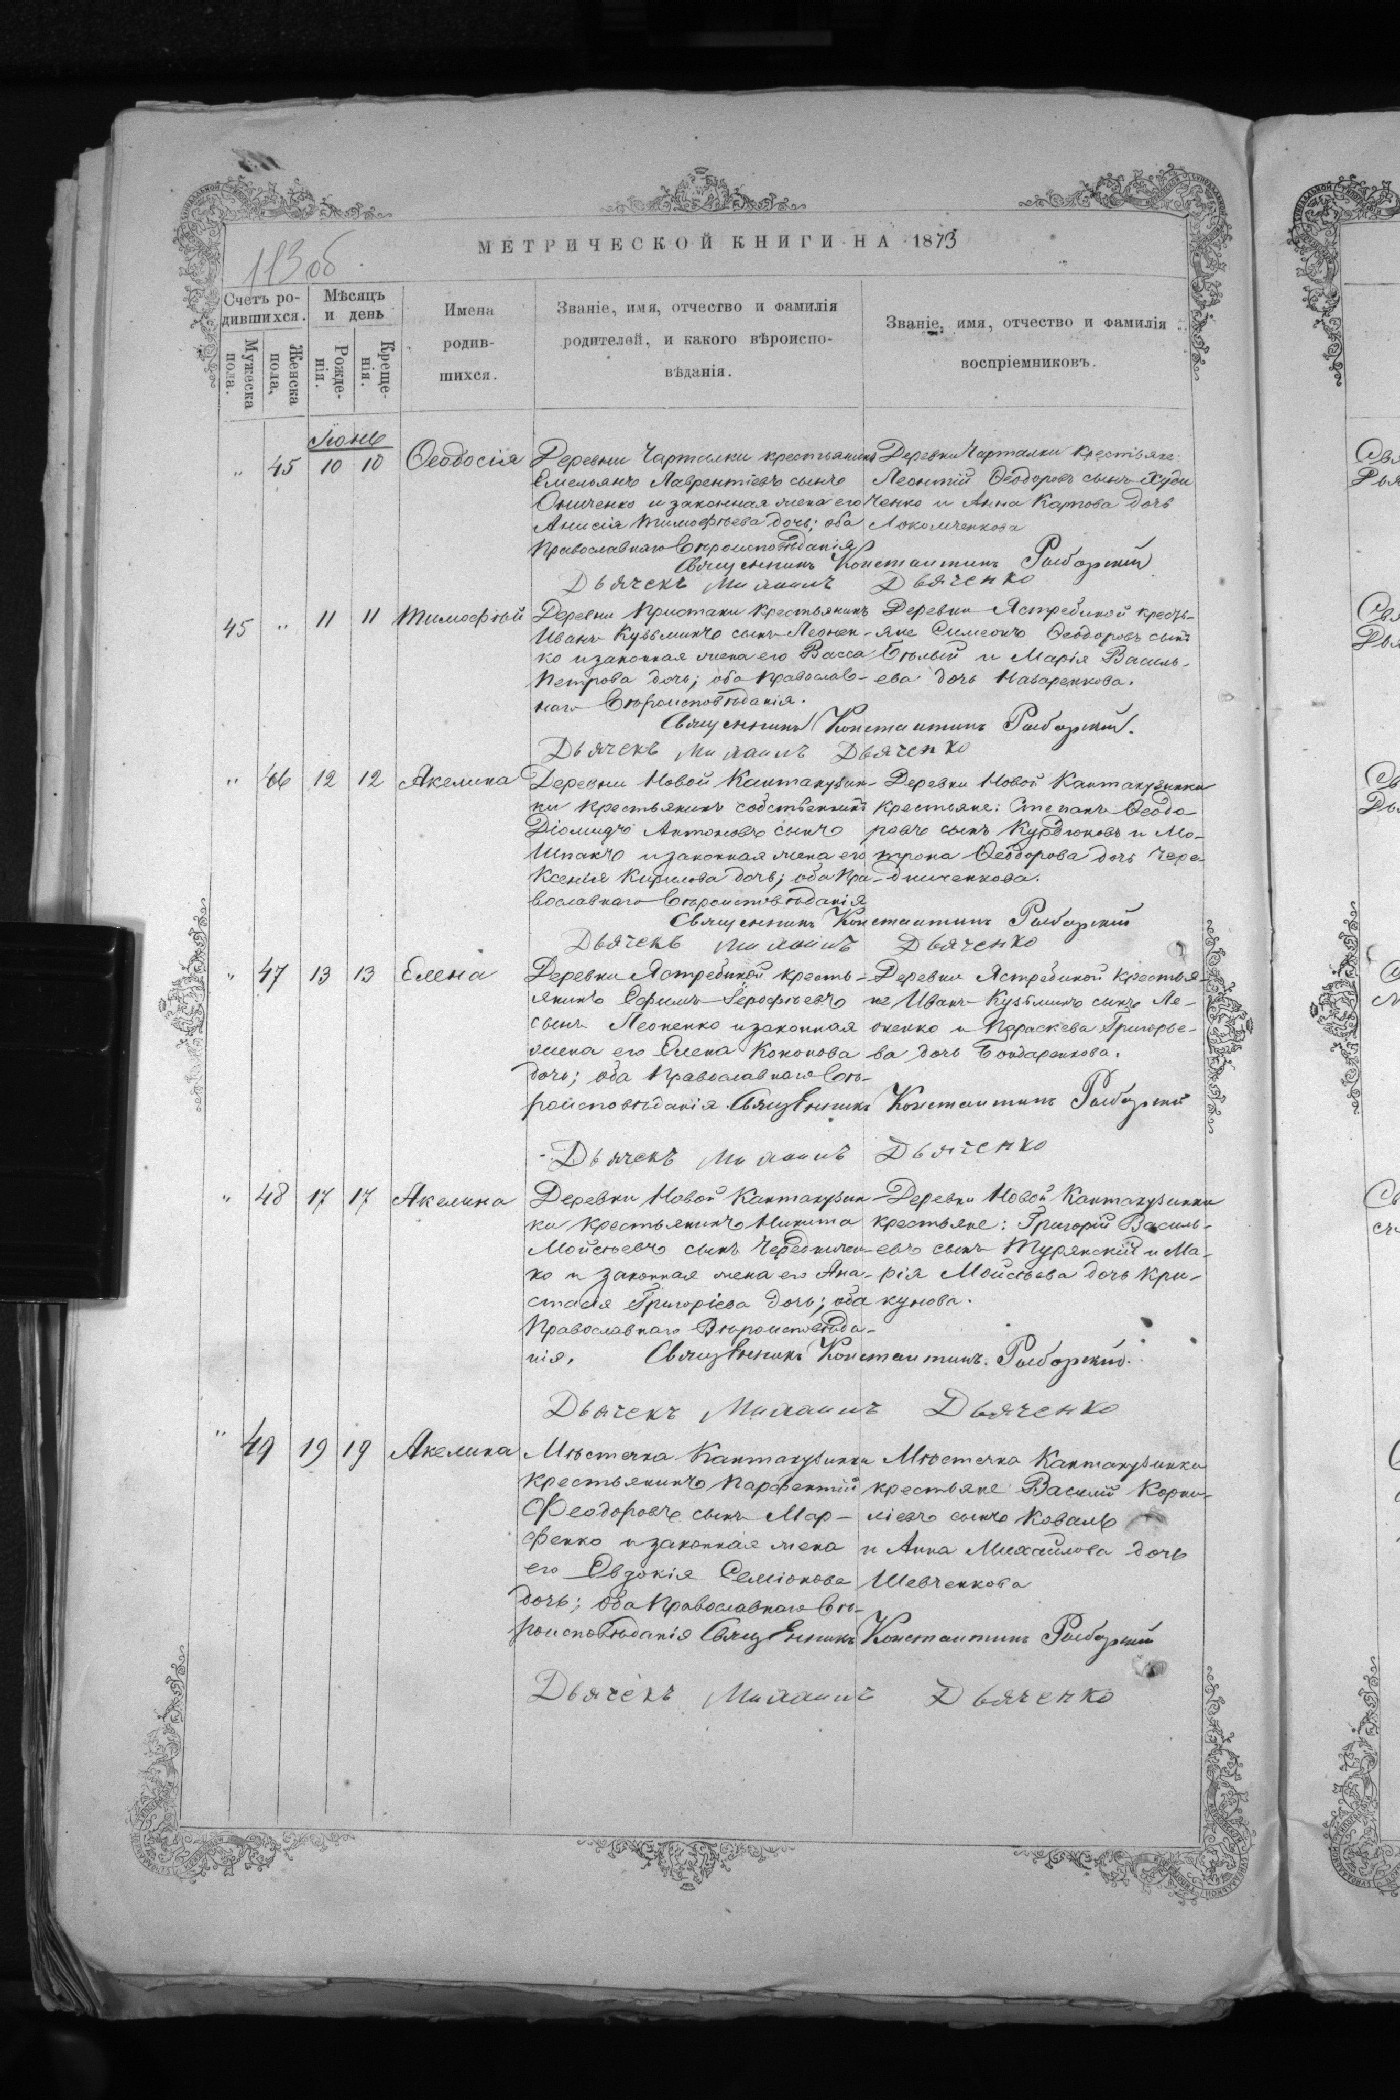 113 об
МЕТРИЧЕСКОЙ КНИГИ НА 1873
Счетъ ро-
дившихся.
Мѣсяцъ
и день
Мужеска
пола.
Женска
пола,
Рожде-
нія.
Креще-
нія.
Имена
родив-
шихся.
Званіе, имя, отчество и фамилія
родителей, и какого вѣроиспо-
вѣданія.
Званіе, имя, отчество и фамилія
воспріемниковъ.
Іюнь
„ 45 10 10 Ѳеодосія
Деревни Чарталки крестьянинъ
Емельянъ Лаврентіевъ сынъ
Ониченко и законная жена его
Анисія Тимофѣева дочь; оба
Православнаго Вѣроисповѣданія
Деревни Чарталки крестьяне
Леонтій Ѳеодоровъ сынъ
ченко и Анна Карпова дочь
Священникъ Константинъ
Дьячекъ Михаилъ Дьяченко
45 „ 11 11 Тимофей
Деревни Пристани крестьянинъ
Иванъ Кузьминъ сынъ Леонен-
ко и законная жена его Васса
Петрова дочь; оба православ-
наго Вѣроисповѣданія.
Деревни Ястребиной кресть-
яне Симеонъ Ѳеодоровъ сынъ
Бѣлый и Марія Василь-
ева дочь Назаренкова.
Священникъ Константинъ
Дьячекъ Михаилъ Дьяченко
„ 46 12 12 Акелина
Деревни Новой Кантакузин-
ки крестьянинъ собственникъ
Діомидъ Антоновъ сынъ
Шпакъ и законная жена его
Ксенія Кирилова дочь; оба Пра-
вославнаго Вѣроисповѣданія
Деревни Новой Кантакузинки
крестьяне: Степанъ Ѳеодо
ровъ сынъ Курдюковъ и Мо-
трона Ѳеодорова дочь Чере-
дниченкова.
Священникъ Константинъ
Дьячекъ Михаилъ Дьяченко
„ 47 13 13 Елена
Деревни Ястребиной кресть-
янинъ Ефимъ Іерофѣевъ
сынъ Леоненко и законная
жена его Елена Кононова
дочь; оба православнаго Вѣ-
роисповѣданія
Деревни Ястребиной крестья-
не Иванъ Кузьминъ сынъ Ле-
оненко и Параскева Григорье-
ва дочь Бондаренкова.
Священникъ Константинъ
Дьячекъ Михаилъ Дьяченко
„ 48 17 17 Акелина
Деревни Новой Кантакузин-
ки крестьянинъ Никита
Мойсѣевъ сынъ Чередничен
ко и законная жена его Ана-
стасія Григоріева дочь; оба
Православнаго Вѣроисповѣда-
нія.
Деревни Новой Кантакузинки
крестьяне: Григорій Василь-
евъ сынъ Турянскій и Ма-
рія Мойсѣева дочь Кри-
кунова.
Священникъ Константинъ
Дьячекъ Михаилъ Дьяченко
„ 49 19 19 Акелина
Мѣстечка Кантакузинки
крестьянинъ Парфентій
Феодоровъ сынъ Мар-
фенко и законная жена
его Евдокія Семіонова
дочь; оба православнаго Вѣ-
роисповѣданія
Мѣстечка Кантакузинки
крестьяне Василій Корни-
ліевъ сынъ Коваль
и Анна Михайлова дочь
Шевченкова
Священникъ Константинъ
Дьячекъ Михаилъ Дьяченко